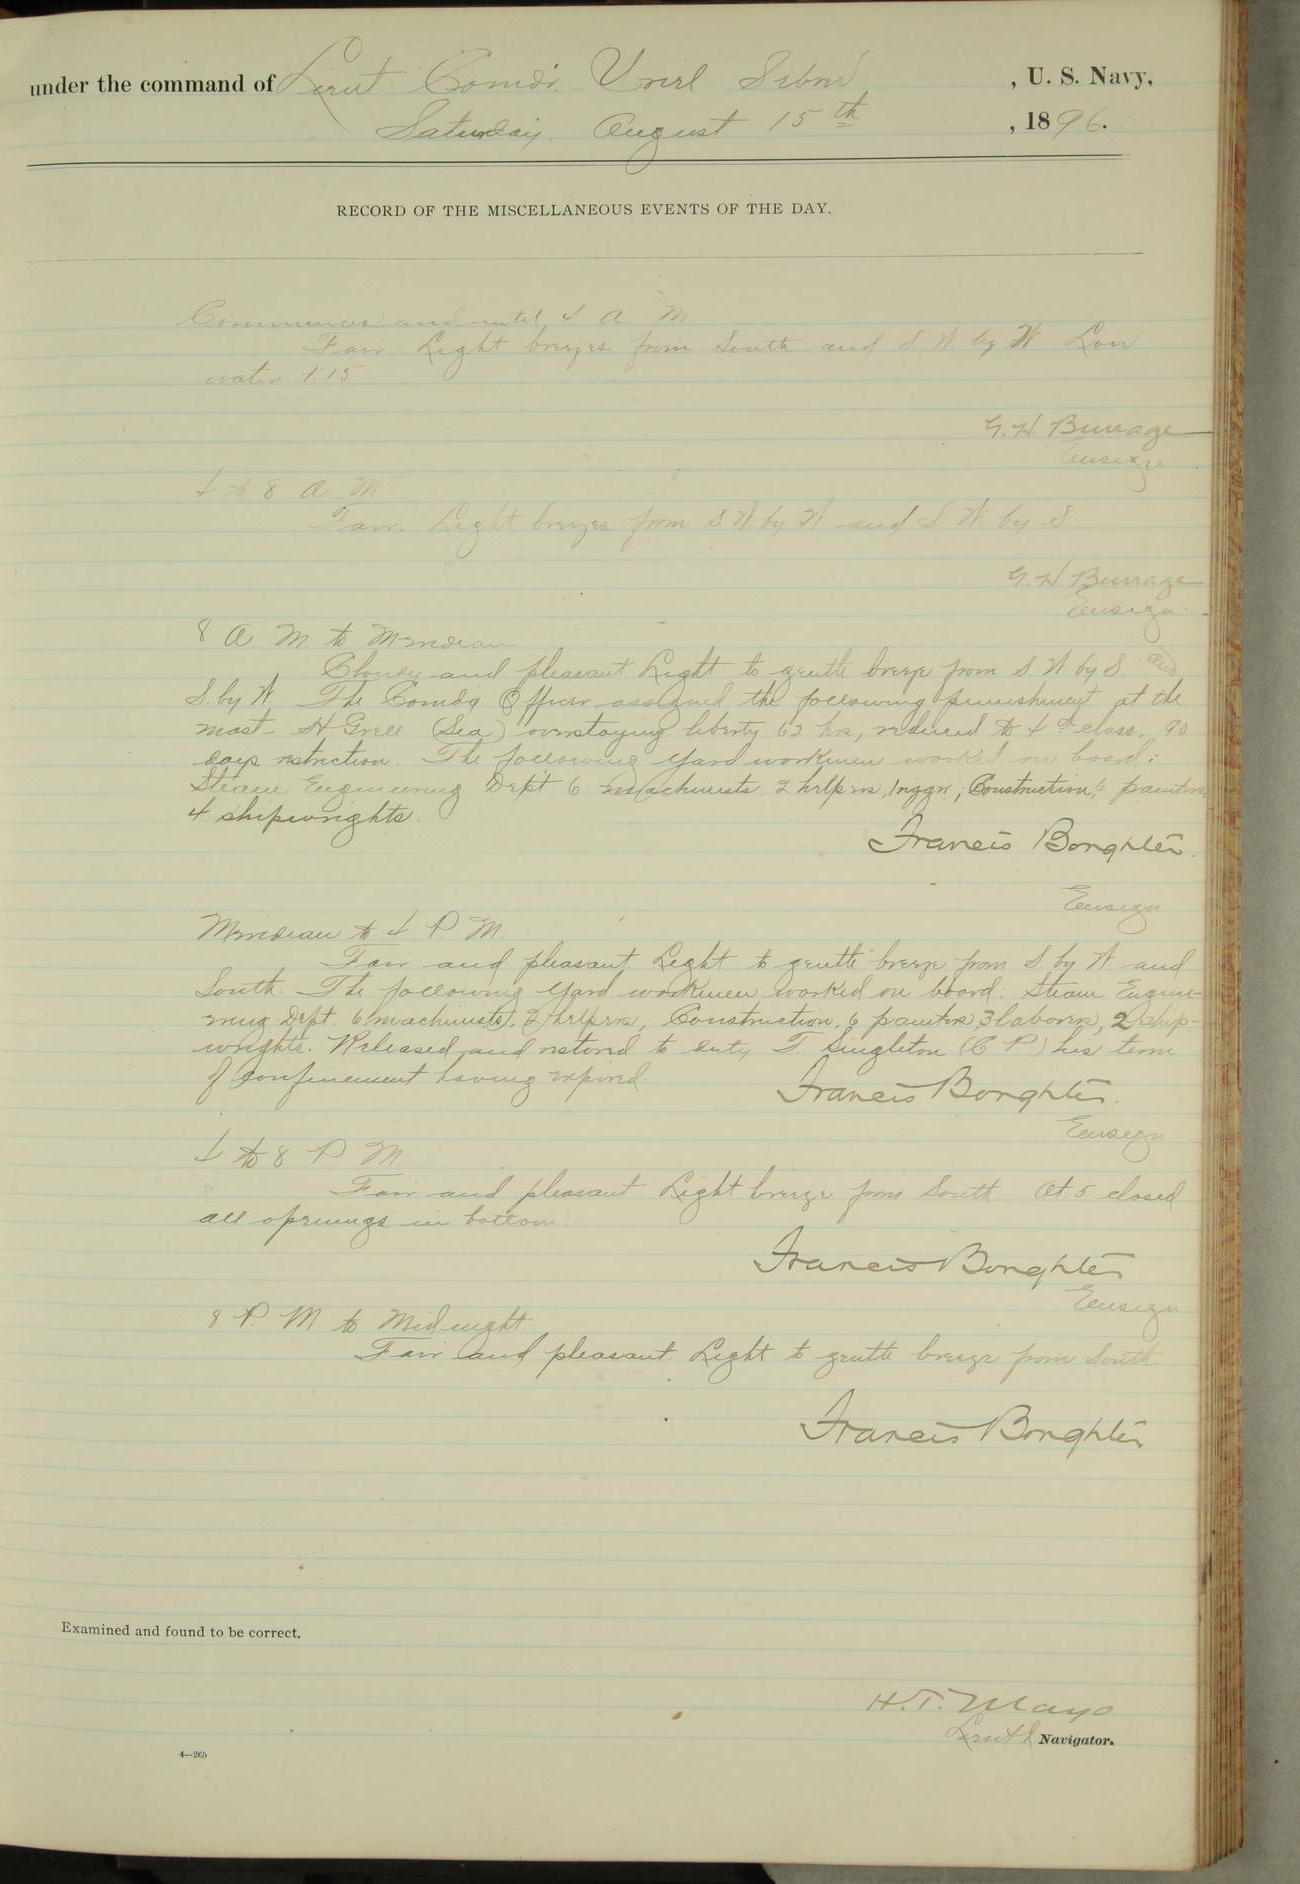 under the command of Lieut Comdr. Uriel Sebree, U. S. Navy,
Saturday. August 15th, 1896.
RECORD OF THE MISCELLANEOUS EVENTS OF THE DAY.
Commences and until 4 A M
Fair Light breezes from South and S W by W Low
water 4.15
G. W. Burrage
Ensign
4 to 8 A. M.
Fair. Light breezes from S W by W and S W by S
G. W Burrage
Ensign
8 A. M to Meridian
Cloudy and pleasant Light to gentle breeze from S W by S and
S. by W. The Comdg Officer assigned the following punishment at the
mast - H Grell (Sea) overstaying liberty 62 hrs, reduced to 4th class. 90
days restriction. The following Yard workmen worked on board:
Steam Engineering Dep't 6 machinists 2 helpers, 1 rggr; Construction, 6 painters,
4 shipwrights.
Francis Boughter.
Ensign
Meridian to 4 P. M
Fair and pleasant Light to gentle breeze from S by W and
South. The following Yard workmen worked on board: Steam Engine-
ering Dept. 6 machinists, 2 helpers; Construction, 6 painters, 3 laborers, 2 ship-
wrights. Released and restored to duty T. Singleton (C P) his term
of confinement having expired
Francis Boughter.
Ensign
4 to 8 P M.
Fair and pleasant Light breeze from South At 5 closed
all openings in bottom
Francis Boughter
Ensign
8 P. M to Midnight.
Fair and pleasant Light to gentle breeze from South
Francis Boughter
Examined and found to be correct.
H. T. Mayo
Lieut Navigator.
4—265